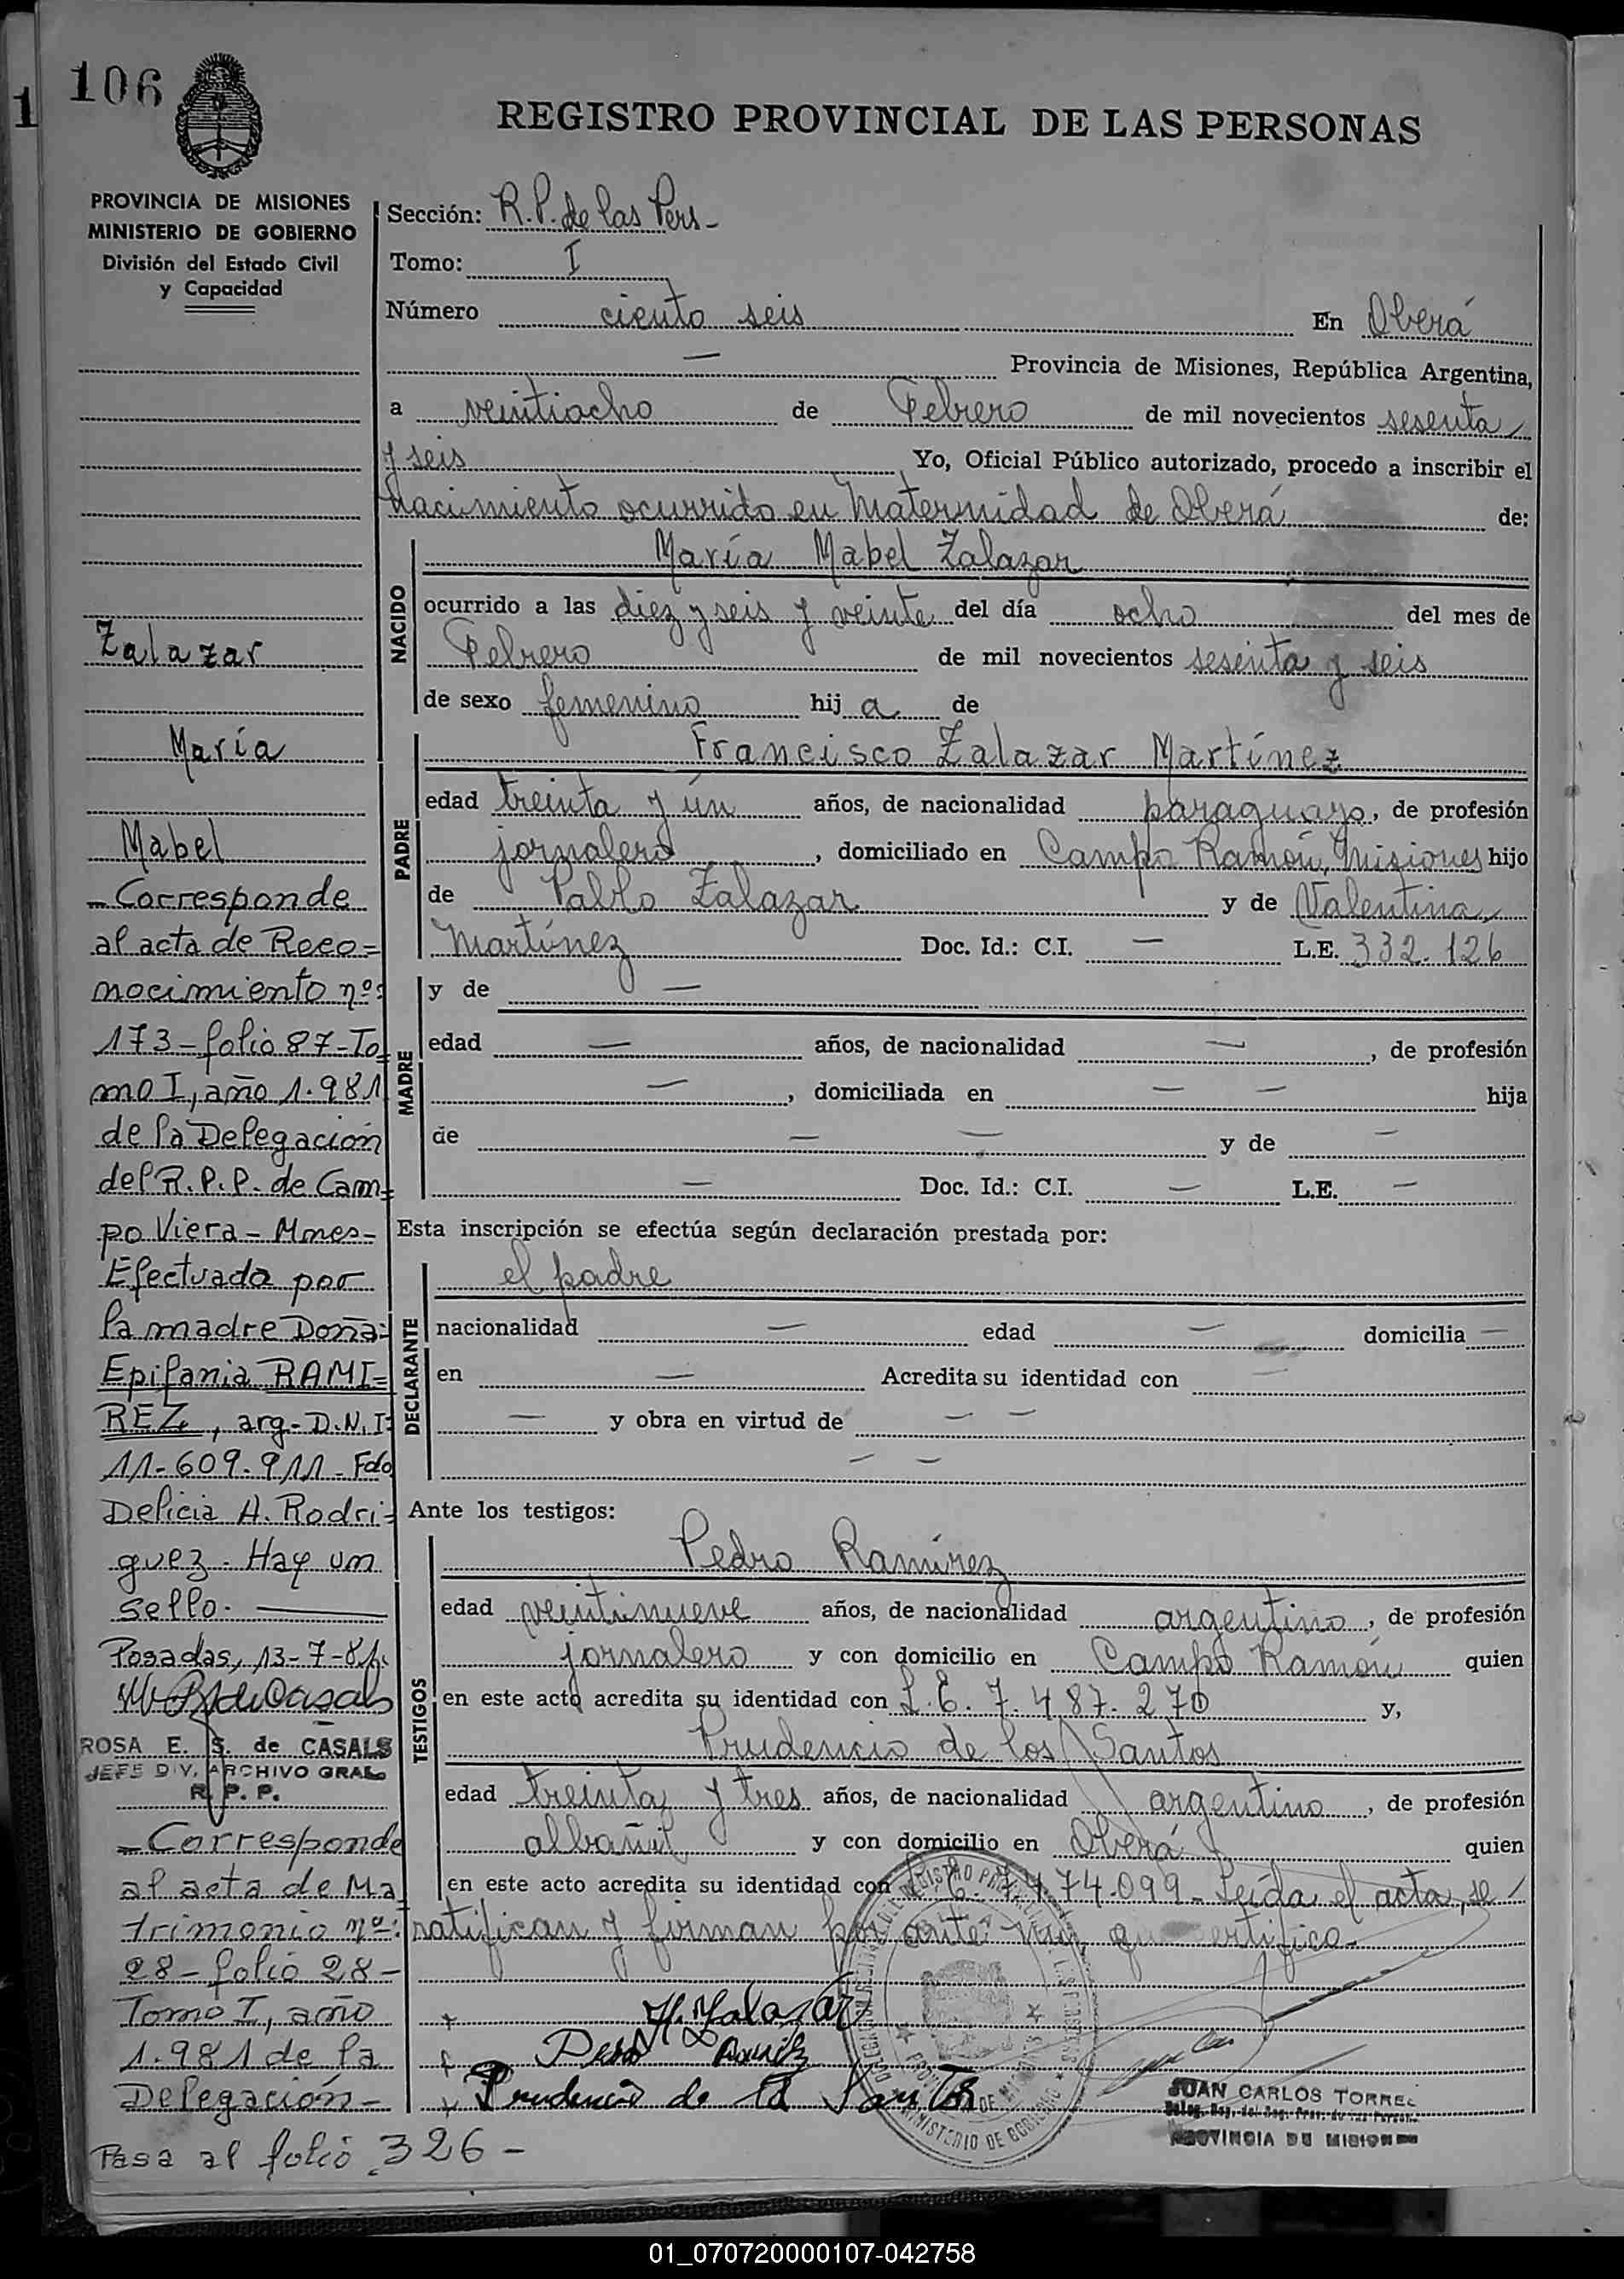 106
1
REGISTRO PROVINCIAL DE LAS PERSONAS
PROVINCIA DE MISIONES
MINISTERIO DE GOBIERNO
División del Estado Civil
y Capacidad
Zalazar
María
Mabel
- Corresponde
al acta de Reco=
nocimiento nº:
173 - folio 87 - To=
mo I, año 1.981
de la Delegación
del R.P.P. de Cam=
po Viera - Mnes -
Efectuada por
la madre Doña:
Epifania RAMI=
REZ, arg - D.N.I:
11-609.911 - Fdo
Delicia A. Rodri=
guez - Hay un
sello.
Posadas, 13-7-81
ROSA E. S. de CASALS
JEFE DIV. ARCHIVO GRAL
R. P. P.
- Corresponde
al acta de Ma
trimonio nº:
28 - folio 28 -
Tomo I, año
1.981 de la
Delegación -
Pasa al folio 326 -
Sección: R.P. de las Pers -
Tomo: I
Número ciento seis En Oberá
— Provincia de Misiones, República Argentina,
a veintiocho de Febrero de mil novecientos sesenta
y seis Yo, Oficial Público autorizado, procedo a inscribir el
nacimiento ocurrido en Maternidad de Oberá de:
NACIDO
María Mabel Zalazar
ocurrido a las diez y seis y veinte del día ocho del mes de
Febrero de mil novecientos sesenta y seis
de sexo femenino hij a de
PADRE
Francisco Zalazar Martínez
edad treinta y un años, de nacionalidad paraguayo, de profesión
jornalero, domiciliado en Campo Ramón, Misiones hijo
de Pablo Zalazar y de Valentina
Martínez Doc. Id.: C.I. — L.E. 332.126
MADRE
y de —
edad — años, de nacionalidad —, de profesión
—, domiciliada en — — hija
de — — y de —
— Doc. Id.: C.I. — L.E. —
Esta inscripción se efectúa según declaración prestada por:
DECLARANTE
el padre
nacionalidad — edad — domicilia —
en — Acredita su identidad con —
— y obra en virtud de — —
— —
Ante los testigos:
TESTIGOS
Pedro Ramírez
edad veintinueve años, de nacionalidad argentino, de profesión
jornalero y con domicilio en Campo Ramón quien
en este acto acredita su identidad con L.E. 7.487.270 y,
Prudencio de los Santos
edad treinta y tres años, de nacionalidad argentino, de profesión
albañil y con domicilio en Oberá quien
en este acto acredita su identidad con 7.474.099 - Leída el acta, se
ratifican y firman por ante mí, que certifico -
Prudencio de los Santos
JUAN CARLOS TORRES
PROVINCIA DE MISIONES
MINISTERIO DE GOBIERNO
01_070720000107-042758